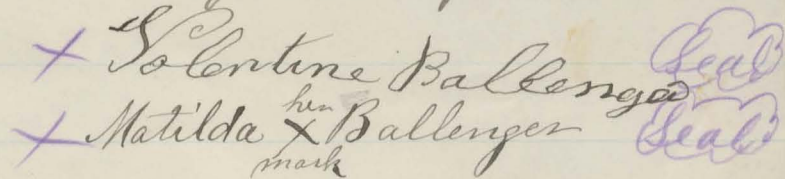 X Volentine Ballenger Seal
X Matilda her X mark Ballenger Seal